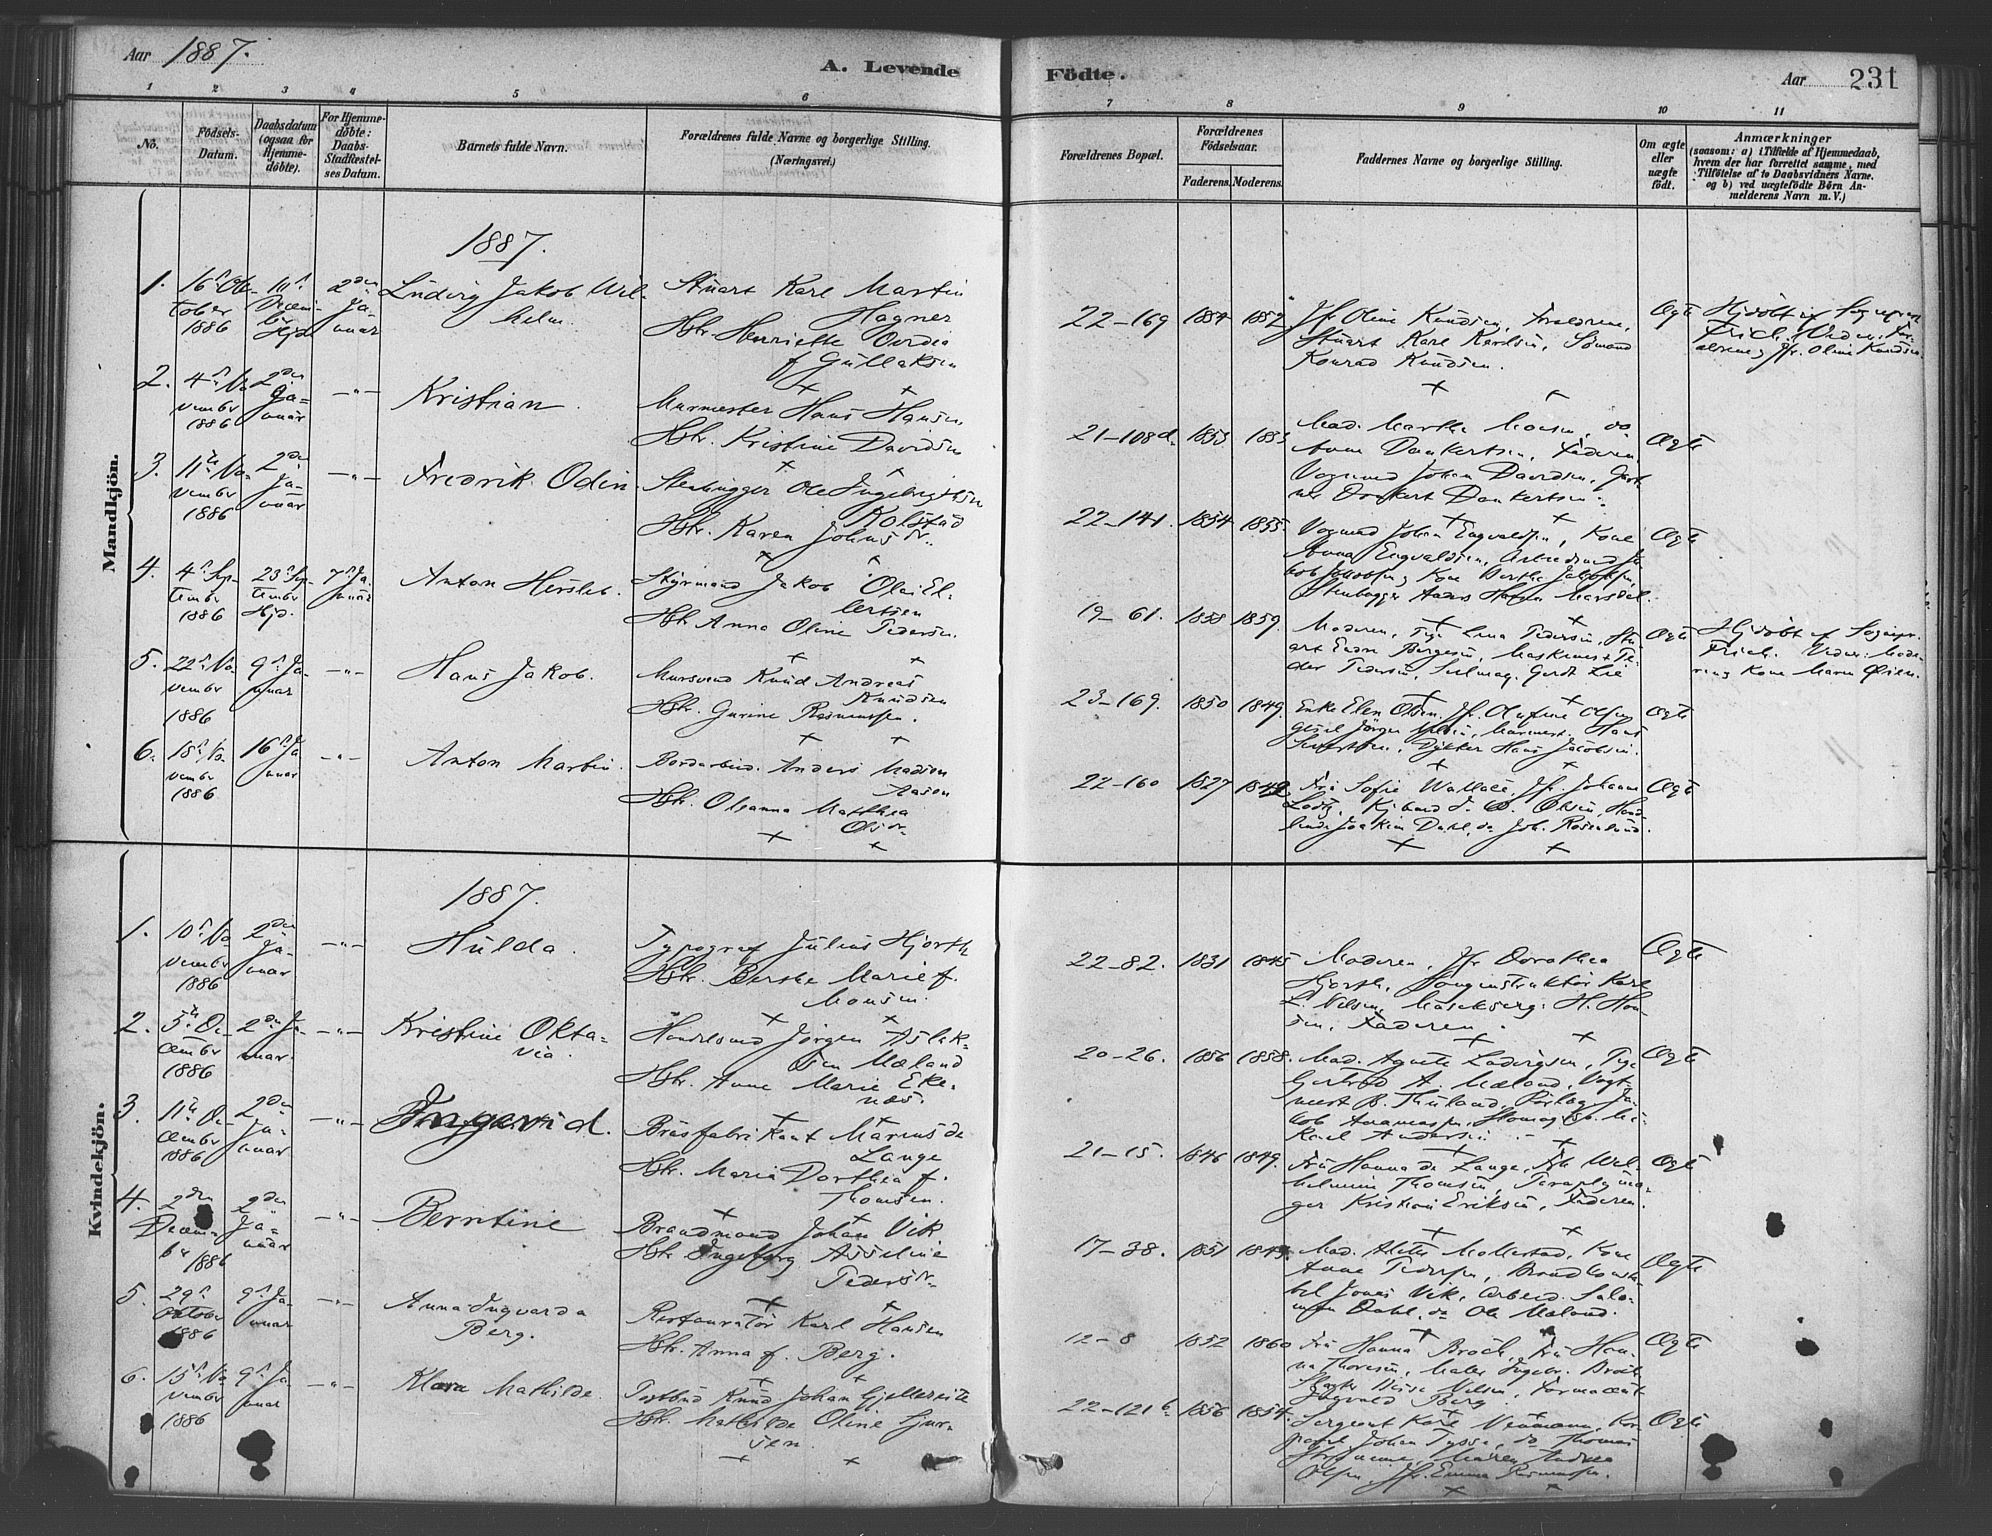 Aar 1887.
A. Levende Födte.
Aar 231
1 2 3 4 5 6 7 8 9 10 11
No.
Födsels-Datum.
Daabsdatum (ogsaa for Hjemme-döbte).
For Hjemme-döbte: Daabs-Stadfæstel-ses Datum.
Barnets fulde Navn.
Forældrenes fulde Navne og borgerlige Stilling. (Næringsvei.)
Forældrenes Bopæl.
Forældrenes Födselsaar.
Faderens. Moderens.
Faddernes Navne og borgerlige Stilling.
Om ægte eller uægte födt.
Anmærkninger
(saasom: a) i Tilfælde af Hjemmedaab, hvem der har forrettet samme, med Tilföielse af to Daabsvidners Navne. og b) ved uægtefödte Börn An-melderens Navn m. V.)
Mandkjön.
1887.
1. 16 Ok-
tober
1886
10 Decem-
ber
Hjd
2den Ja-
nuar
Ludvig Jakob Wil-
helm
Stuart Karl Martin
Hagner
Hstr. Henriette
f Gullaksen
22-169 1854 1852
Jfr. Oline Knudsen, Forældrene,
Stuart Karl Karlsen, Sömand
Konrad Knudsen.
Ægte
Hjdöbt af Sognepr.
Frich.
Jfr. Oline Knudsen
2. 4 No-
vembr
1886
2den Ja-
nuar
-"-
Kristian
Murmester Hans Hansen
Hstr. Kristine Davidsen
21-108d. 1853 1853
Mad. Martha Monsen, do
Anne Dankertsen, Faderen,
Vognmd Johan Davidsen,
Dankert Dankertsen.
Ægte
3. 11te No-
vember
1886
2den Ja-
nuar
-"-
Fredrik Odin
Stenhugger Ole Ingebrigtsen
Kolstad
Hstr. Karen Johnsdr.
22-141. 1854 1855
Vognmd Johan Engvaldsen, Kone
Anna Engvaldsen, Arbeidsmd Ja-
kob Jakobsen, Kone Berthe Jakobsen,
Stenhugger Anders Hansen
Ægte
4. 4 Sep-
tembr
1886
23 Sep-
tember
Hjd.
7 Ja-
nuar
Anton Hersleb.
Styrmand Jakob Olai El-
lertsen
Hstr. Anna Oline Pedersen.
19-61. 1858 1859.
Moderen, Pige Lina Pedersen, Stu-
art Endre Börgesen, Maskinist Pe-
der Pedersen, Seilmag. Gerdt Lie
Ægte
Hjdöbt af Sognepr.
Frich. Vidner: Mode-
ren, Kone Maren Olsen.
5. 22 No-
vember
1886
9 Ja-
nuar
-"-
Hans Jakob.
Mursvend Knud Andreas
Knudsen
Hstr. Gurine Rasmussen.
23-169. 1850 1849.
Enke Elen Olsen, Jfr. Olufine Olsen,
Murmest. Hans
Sivertsen, Dykker Hans Jacobsen.
Ægte
6. 18 No-
vembr
1886
16 Ja-
nuar
-"-
Anton Martin.
Bordarbeid. Anders Madsen
Aasen
Hstr. Oleanna Mathea
Olsdr.
22-160 1827 1842
Fru Sofie Wallace, Jfr. Johanne
Kjöbmd J. O. Olsen, Hand-
lende Joakim Dahl, do Joh. Rosenlund.
Ægte
Kvindekjön.
1887.
1. 10 No-
vember
1886
2den Ja-
nuar
-"-
Hulda.
Typograf Julius Hjorth
Hstr. Berthe Marie f.
Monsen.
22-82. 1831 1845
Moderen, Jfr Dorothea
Hjorth, Karl
L. Nilsen, H. Han-
sen, Faderen.
Ægte
2. 5te De-
cember
1886
2den Ja-
nuar.
-"-
Kristine Okta-
via.
Handelsmd Jörgen Aslak-
sen Mæland
Hstr. Anne Marie Eke-
næs.
20-26. 1856 1858.
Mad. Agnete Ludvigsen, Pige
Gertrud A. Mæland, Vogt-
mest B. Thuland, Ja-
kob Mi-
kael Andersen
Ægte
3. 11te De-
cember
1886
2den Ja-
nuar
-"-
Ingerid.
Brusfabrikant Marius de
Lange
Hstr. Maria Dorthea f.
Thomsen.
21-15. 1846 1849.
Fru Hanna de Lange, Frk Wil-
helmine Thomsen, Paraplyma-
ger Kristian Eriksen, Faderen.
Ægte
4. 2den
Decem-
ber 1886
2den
Ja-
nuar
-"-
Berntine
Brandmand Johan Vik
Hstr. Ingeborg Asseline
Pedersdr.
17-38. 1851 1843.
Mad. Mollestad, Kone
Anne Pedersen, Brandkonsta-
bel Jonas Vik, Arbeid. Salo-
mon Dahl, do Ole Mæland.
Ægte
5. 29
Oktober
1886
9 Ja-
nuar
-"-
Anna Ingvarda
Berg.
Restauratör Karl Hansen
Hstr. Anna f. Berg.
12-8 1852 1860
Fru Hanna Broch, Fru Han-
na Thoresen, Maler Ingebr. Broch,
Nilsen, Farmaceut
Ingvald Berg.
Ægte
6. 15 No-
vember
1886
9 Ja-
nuar
-"-
Klara Mathilde.
Postbud Knud Johan Gjetlereite
Hstr. Mathilde Oline Sjur-
sen.
22-121b. 1856 1854.
Sergeant Karl Neumann, Kor-
poral Johan Tysse, do Thomas
Maren Andrea
Olsen, Jfr. Emma Rasmussen.
Ægte